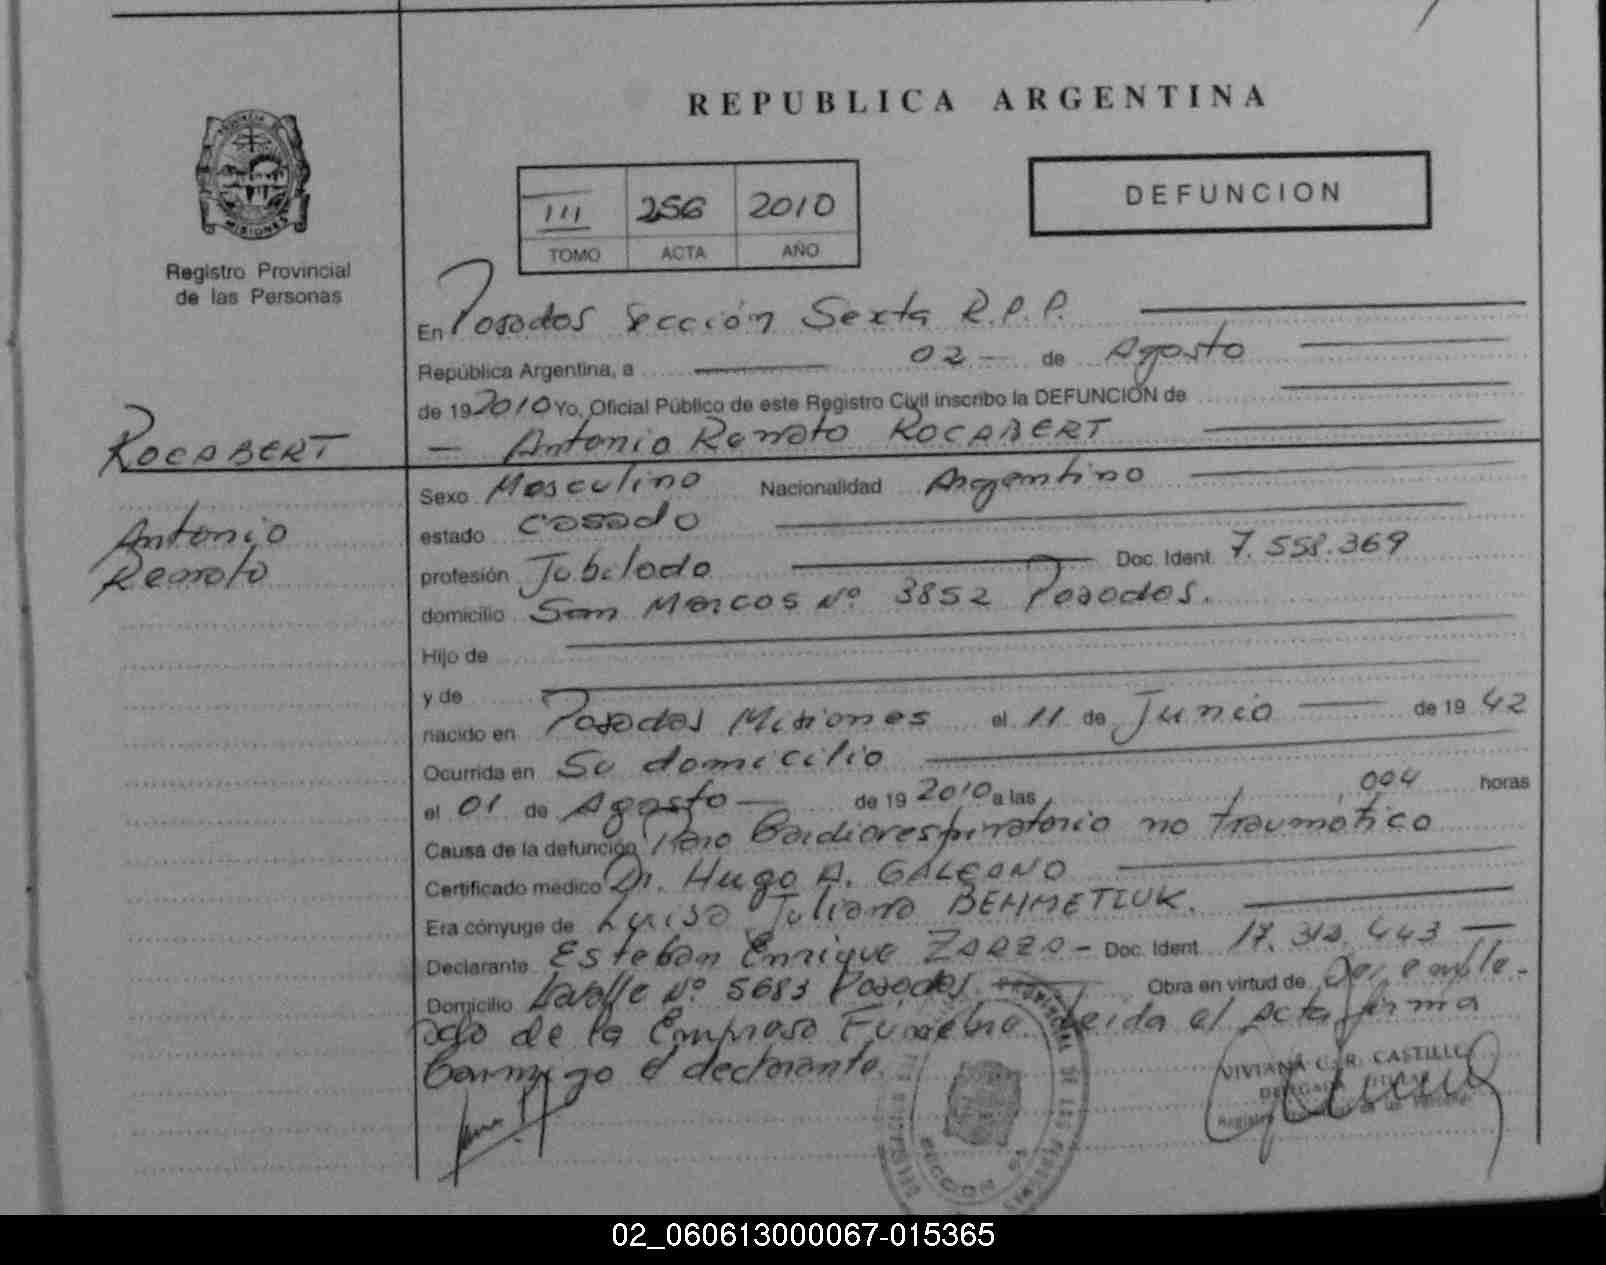 REPUBLICA ARGENTINA
PROVINCIA DE
MISIONES
Registro Provincial
de las Personas
III 256 2010
TOMO ACTA AÑO
DEFUNCION
En Posadas Sección Sexta R.P.P.
República Argentina, a 02 - de Agosto
de 19 2010 Yo, Oficial Público de este Registro Civil inscribo la DEFUNCIÓN de
- Antonio Renato ROCABERT
ROCABERT
Antonio
Renato
Sexo Masculino Nacionalidad Argentino
estado casado
profesión Jubilado Doc. Ident. 7.558.369
domicilio San Marcos Nº 3852 Posadas.
Hijo de
y de
nacido en Posadas Misiones el 11 de Junio de 19 42
Ocurrida en Su domicilio
el 01 de Agosto de 19 2010 a las horas
Causa de la defunción Paro Cardiorespiratorio no traumático
Certificado médico Dr. Hugo A. GALEANO
Era cónyuge de Luisa Juliana
Declarante Esteban Enrique ZARZA - Doc. Ident.
Domicilio Lavalle Nº 5683 Posadas Obra en virtud de Ser emple-
ado de la Empresa Funebre Leida el Acta firma
conmigo el declarante.
VIVIANA G. R. CASTILLO
02_060613000067-015365